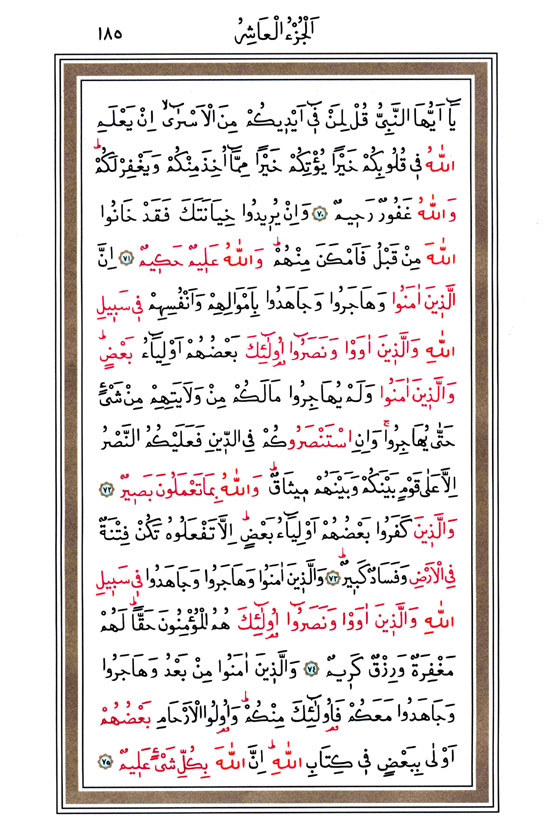 اَلْجُزْءُ الْعَاشِرُ ١٨٥
يَٓا اَيُّهَا النَّبِيُّ قُلْ لِمَنْ فٖٓي اَيْدٖيكُمْ مِنَ الْاَسْرٰىۙ اِنْ يَعْلَمِ
اللّٰهُ فٖي قُلُوبِكُمْ خَيْرًا يُؤْتِكُمْ خَيْرًا مِمَّٓا اُخِذَ مِنْكُمْ وَيَغْفِرْ لَكُمْۜ
وَاللّٰهُ غَفُورٌ رَحٖيمٌ ﴿٧٠﴾ وَاِنْ يُرٖيدُوا خِيَانَتَكَ فَقَدْ خَانُوا
اللّٰهَ مِنْ قَبْلُ فَاَمْكَنَ مِنْهُمْۜ وَاللّٰهُ عَلٖيمٌ حَكٖيمٌ ﴿٧١﴾ اِنَّ
الَّذٖينَ اٰمَنُوا وَهَاجَرُوا وَجَاهَدُوا بِاَمْوَالِهِمْ وَاَنْفُسِهِمْ فٖي سَبٖيلِ
اللّٰهِ وَالَّذٖينَ اٰوَوْا وَنَصَرُٓوا اُو۬لٰٓئِكَ بَعْضُهُمْ اَوْلِيَٓاءُ بَعْضٍۜ
وَالَّذٖينَ اٰمَنُوا وَلَمْ يُهَاجِرُوا مَالَكُمْ مِنْ وَلَايَتِهِمْ مِنْ شَيْءٍ
حَتّٰى يُهَاجِرُواۚ وَاِنِ اسْتَنْصَرُوكُمْ فِي الدّٖينِ فَعَلَيْكُمُ النَّصْرُ
اِلَّا عَلٰى قَوْمٍ بَيْنَكُمْ وَبَيْنَهُمْ مٖيثَاقٌۜ وَاللّٰهُ بِمَا تَعْمَلُونَ بَصٖيرٌ ﴿٧٢﴾
وَالَّذٖينَ كَفَرُوا بَعْضُهُمْ اَوْلِيَٓاءُ بَعْضٍۜ اِلَّا تَفْعَلُوهُ تَكُنْ فِتْنَةٌ
فِي الْاَرْضِ وَفَسَادٌ كَبٖيرٌۜ ﴿٧٣﴾ وَالَّذٖينَ اٰمَنُوا وَهَاجَرُوا وَجَاهَدُوا فٖي سَبٖيلِ
اللّٰهِ وَالَّذٖينَ اٰوَوْا وَنَصَرُٓوا اُو۬لٰٓئِكَ هُمُ الْمُؤْمِنُونَ حَقًّاۜ لَهُمْ
مَغْفِرَةٌ وَرِزْقٌ كَرٖيمٌ ﴿٧٤﴾ وَالَّذٖينَ اٰمَنُوا مِنْ بَعْدُ وَهَاجَرُوا
وَجَاهَدُوا مَعَكُمْ فَاُو۬لٰٓئِكَ مِنْكُمْۜ وَاُو۬لُوا الْاَرْحَامِ بَعْضُهُمْ
اَوْلٰى بِبَعْضٍ فٖي كِتَابِ اللّٰهِۜ اِنَّ اللّٰهَ بِكُلِّ شَيْءٍ عَلٖيمٌ ﴿٧٥﴾